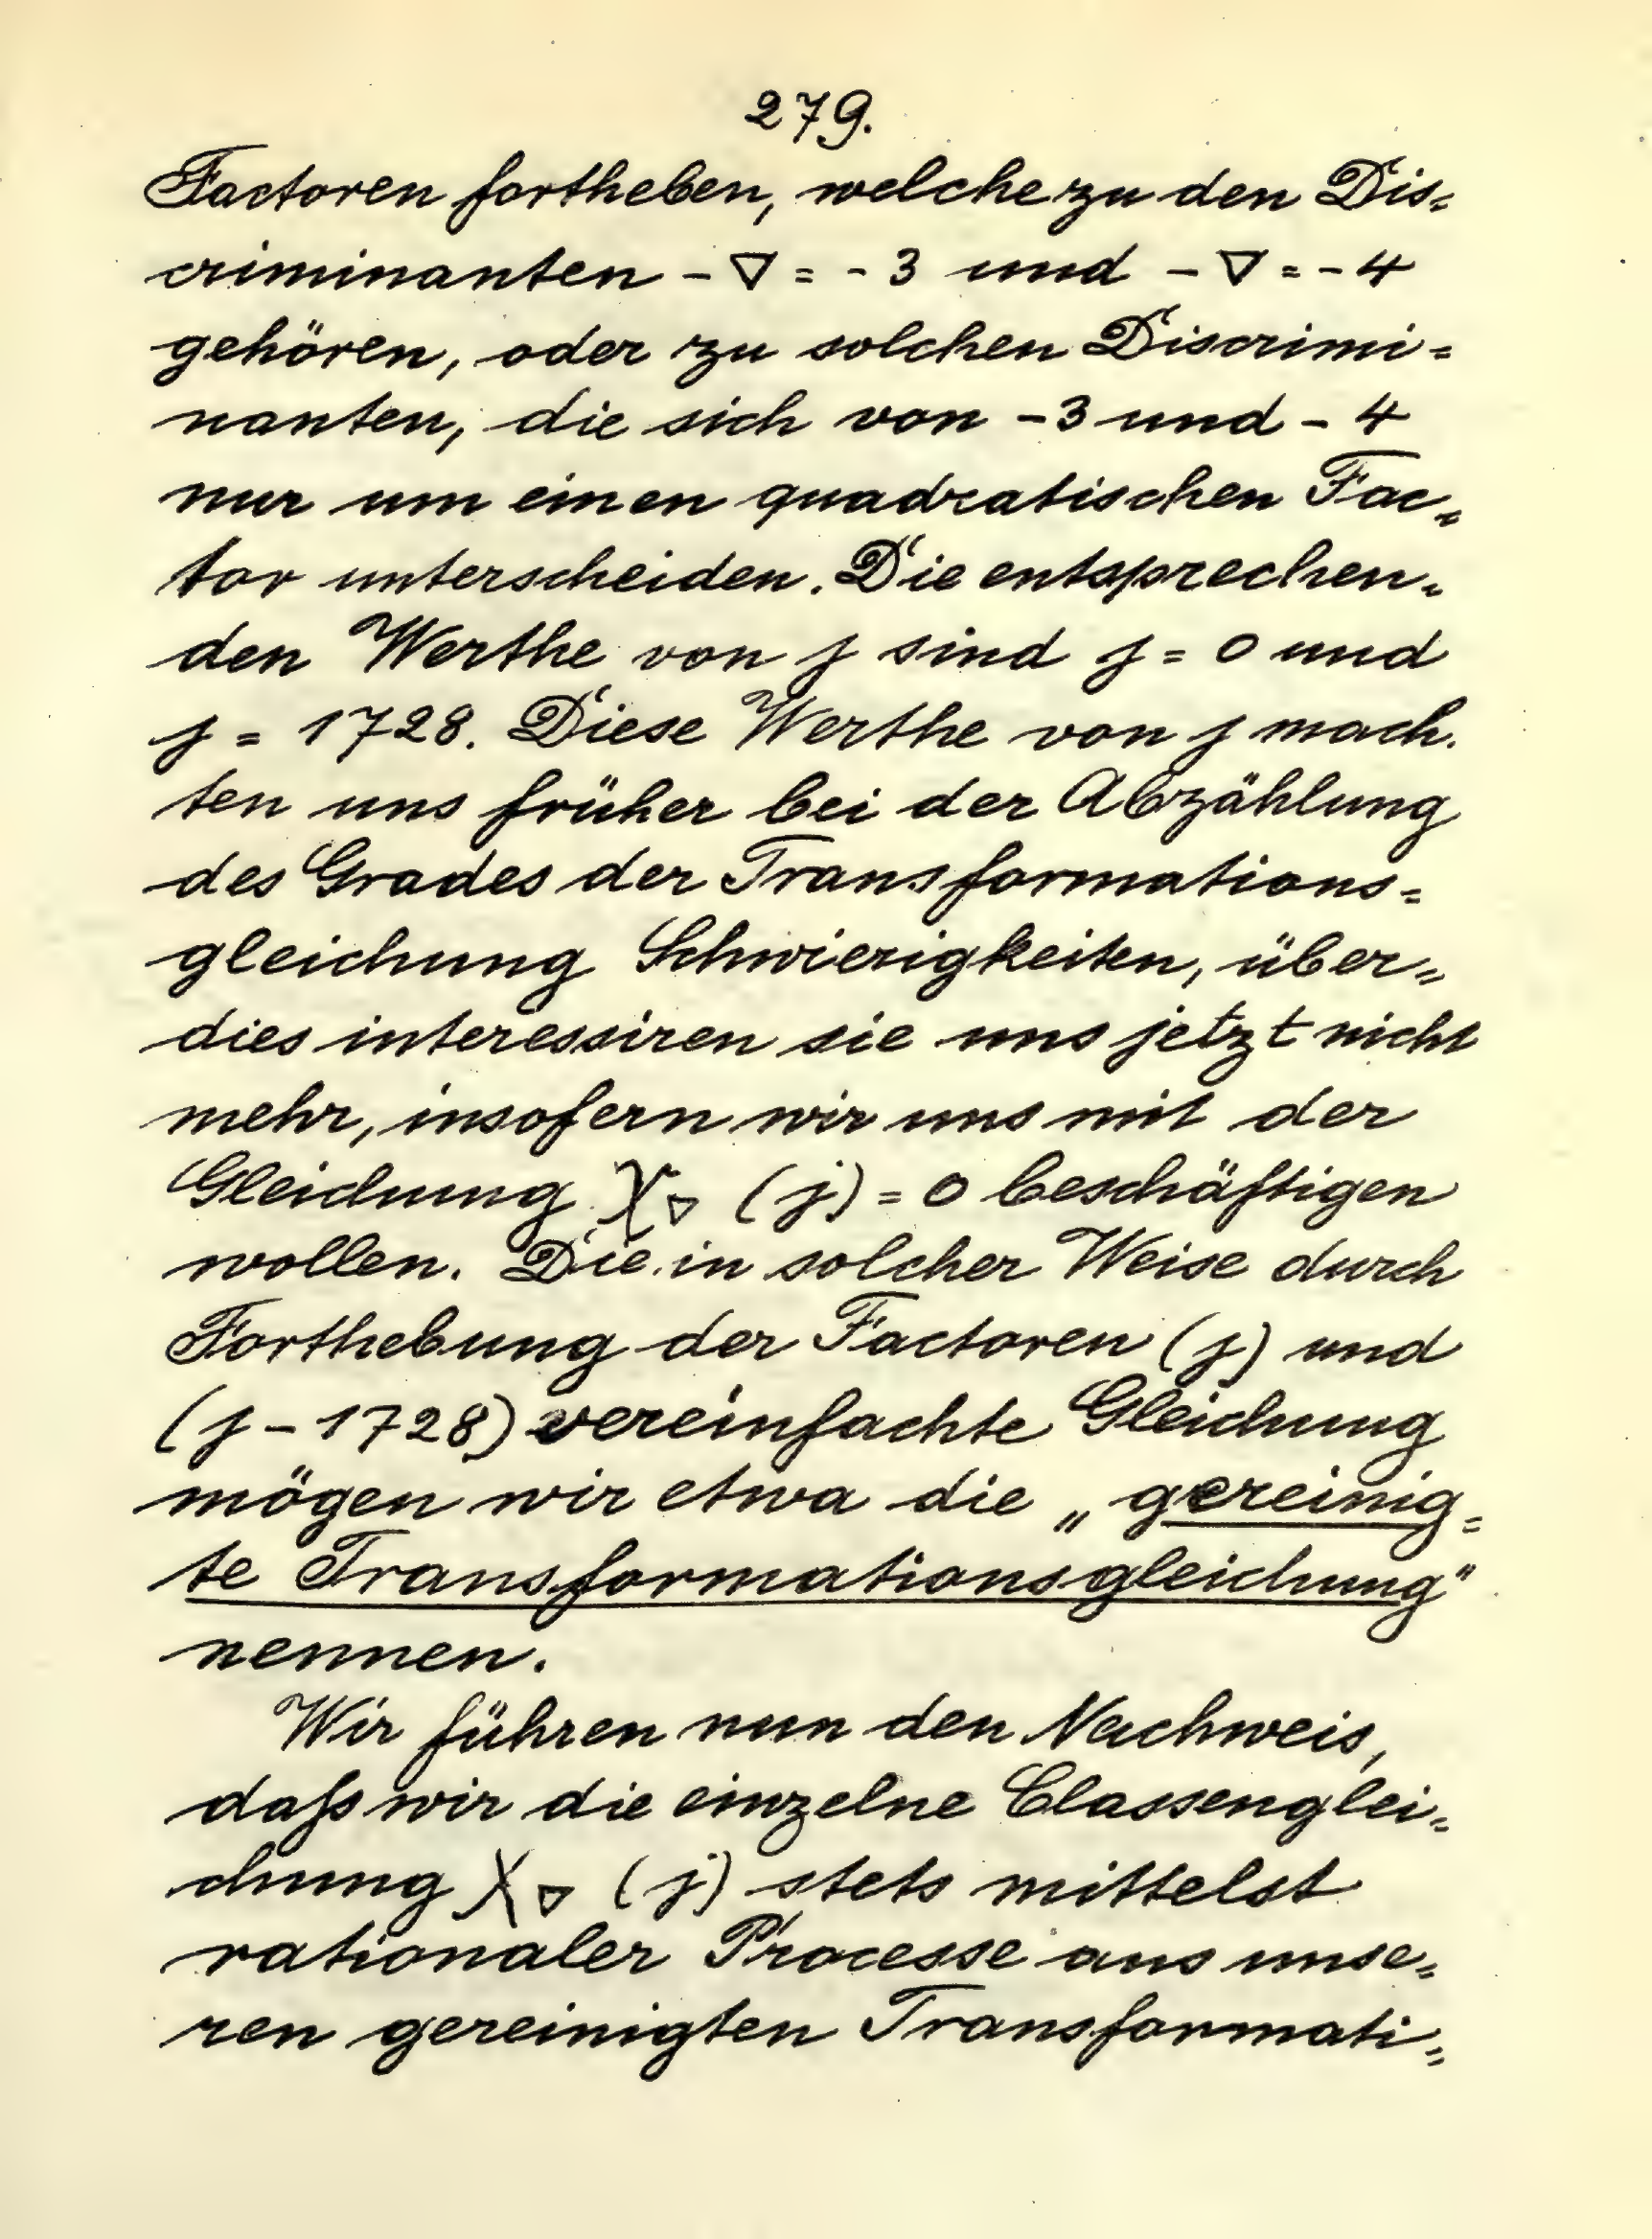 279.
Factoren fortheben, welche zu den Dis=
criminanten - ∇ = - 3 und - ∇ = - 4
gehören, oder zu solchen Discrimi=
nanten, die sich von -3 und - 4
nur um einen quadratischen Fac=
tor unterscheiden. Die entsprechen=
den Werthe von j sind j = 0 und
j = 1728. Diese Werthe von j mach=
ten uns früher bei der Abzählung
des Grades der Transformations=
gleichung Schwierigkeiten, über=
dies interessiren sie uns jetzt nicht
mehr, insofern wir uns mit der
Gleichung X∇ (j) = 0 beschäftigen
wollen. Die in solcher Weise durch
Forthebung der Factoren (j) und
(j - 1728) vereinfachte Gleichung
mögen wir etwa die „gereinig=
te Transformationsgleichung"
nennen.
Wir führen nun den Nachweis,
daſs wir die einzelne Classenglei=
chung X∇ (j) stets mittelst
rationaler Processe aus unse=
ren gereinigten Transformati=